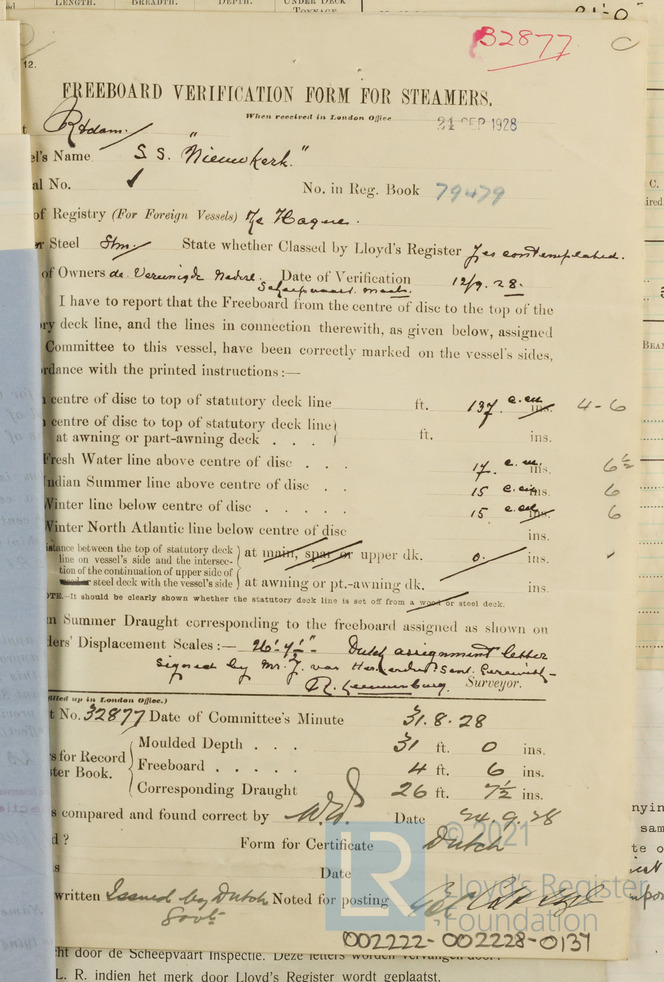 LENGTH. BREADTH. DEPTH. UNDER DECK TONNAGE
B2877
12.
FREEBOARD VERIFICATION FORM FOR STEAMERS.
When received in London Office 21 SEP 1928
R'dam
el's Name S.S. "Nieuwkerk."
al No. No. in Reg. Book 79479
of Registry (For Foreign Vessels) The Hague.
or Steel Stm. State whether Classed by Lloyd's Register Yes contemplated.
of Owners de Vereenigde Nederl. Scheepvaart. maats. Date of Verification 12/9.28.
I have to report that the Freeboard from the centre of disc to the top of the
ry deck line, and the lines in connection therewith, as given below, assigned
Committee to this vessel, have been correctly marked on the vessel's sides,
rdance with the printed instructions:—
centre of disc to top of statutory deck line ft. 137 c.m. ins. 4-6
centre of disc to top of statutory deck line
at awning or part-awning deck . . . ft. ins.
Fresh Water line above centre of disc . . . 17 c.m. ins. 6½
Indian Summer line above centre of disc . . 15 c.m. ins. 6
Winter line below centre of disc . . . . . 15 c.m. ins. 6
Winter North Atlantic line below centre of disc ins.
istance between the top of statutory deck
line on vessel's side and the intersec-
tion of the continuation of upper side of
steel deck with the vessel's side
at main, spar or upper dk. 0. ins.
at awning or pt.-awning dk. ins.
OTE.—It should be clearly shown whether the statutory deck line is set off from a wood or steel deck.
n Summer Draught corresponding to the freeboard assigned as shown on
ders' Displacement Scales:— 26'. 7½" Dutch assignment letter
signed by Mr. J. van
Surveyor.
illed up in London Office.)
t No. 32877 Date of Committee's Minute 31.8.28
s for Record
ster Book.
Moulded Depth . . . 31 ft. 0 ins.
Freeboard . . . . . 4 ft. 6 ins.
Corresponding Draught 26 ft. 7½ ins.
s compared and found correct by Date 24.9.28
d ? Form for Certificate Dutch
s Date
written Issued by Dutch Govt. Noted for posting
LR
© 2021
Lloyd's Register
Foundation
002222-002228-0137
ht door de Scheepvaart Inspectie. Deze letters worden vervangen door:
L. R. indien het merk door Lloyd's Register wordt geplaatst.